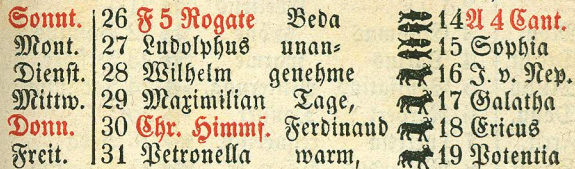 Sonnt. 26 F 5 Rogate Beda 14 A 4 Cant.
Mont. 27 Ludolphus unan- 15 Sophia
Dienst. 28 Wilhelm genehme 16 J. v. Nep.
Mittw. 29 Maximilian Tage, 17 Galatha
Donn. 30 Chr. Himmf. Ferdinand 18 Ericus
Freit. 31 Petronella warm, 19 Potentia